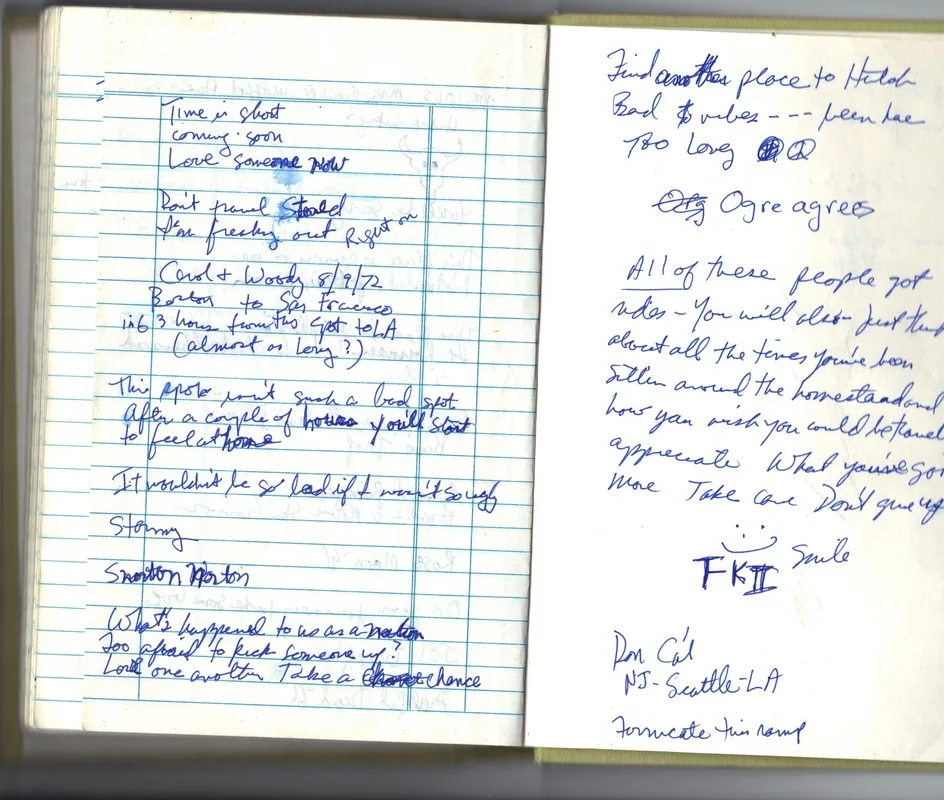 Time is short
coming soon
Love someone now
Don't travel Stoned
I'm freaking out Right on
Carol + Woody 8/9/72
Boston to San Francisco
in 6 3 hours from this spot to LA
(almost as long?)
This spot isn't such a bad spot
After a couple of hours you'll start
to feel at home
It wouldn't be so bad if I wasn't so ugly
Stormy
Snorton Norton
What's happened to us as a nation
Too afraid to pick someone up?
Love one another Take a chance
Find another place to Hitch
Bad vibes --- been here
Too Long
Ogre agrees
All of these people got
rides - You will also - Just think
about all the times you've been
Sittin around the homestead and
how you wish you could be travel
appreciate What you've got
More Take care Don't give up
Smile
FKII
Ron Cal
NJ-Seattle-LA
Fornicate this ramp